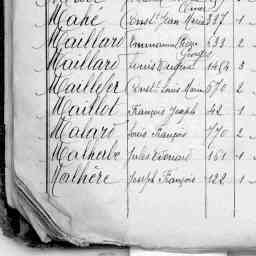 Mahé Const. Jean Marie 337 1
Maillard Emmanuel 233 2
Maillard Louis 3
Maillefer Const. Louis Marie 670 2
Maillot François Joseph 42 1
Malard Louis François 770 2
Malherbe Jules Edouard 161 1
Malhère Joseph François 122 1